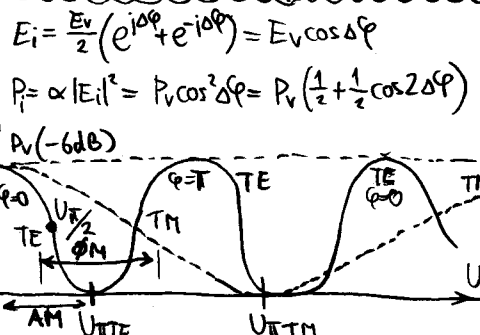 Ei = Ev/2 (e^jΔφ + e^-jΔφ) = Ev cosΔφ
Pi = α|Ei|² = Pv cos²Δφ = Pv (1/2 + 1/2 cos2Δφ)
Pv (-6dB)
φ=0 φ=π TE TE TM
φ=0
TE Uπ/2 TM
φM
U
AM UπTE UπTM